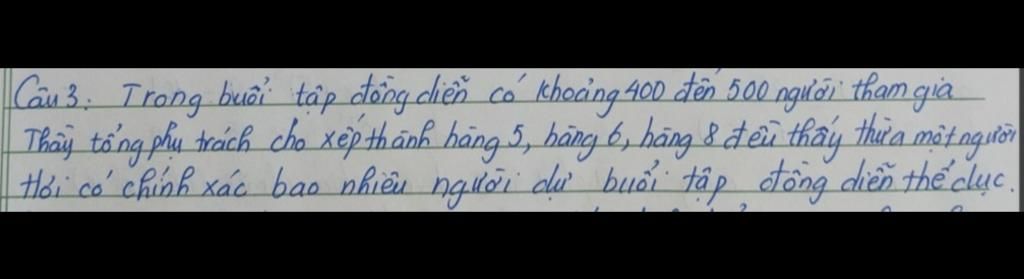 Câu 3: Trong buổi tập đồng diễn có khoảng 400 đến 500 người tham gia
Thầy tổng phụ trách cho xếp thành hàng 5, hàng 6, hàng 8 đều thấy thừa một người
Hỏi có chính xác bao nhiêu người dự buổi tập đồng diễn thể dục.